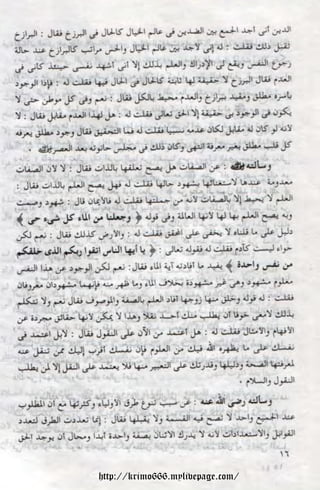 الذين أتى أجد الجمع بين الضدين في عالم الخيال كالحال في البرزخ فقال : البرازخ
تقبل ذلك فقلت : له إني لا أجد بين عالم الخيال والحس مراتب كالبرازخ عند حالة
رجوع النفس ويقع لي الإدراك والعلم بذلك إلا أني أشهد نفسي حينئذ كأني في
العدم فقال البرزخ لا حقيقة لها ثابتة كالحال في الخيال فيها فقلت له : فإذا الوجود
بأسره مطلق ومقيد ببرازخ والعدم محيط بالكل فقال : نعم وفي كل موطن حتى لا
يكون في الوجود بق إلا الحق تعالى فقلت : له هل لهذا العدم مقابل فقال : لا
لأنه لو كان له مقابل لكان عدمه نسبيا فقلت له فما التحقيق فقال وصول مطلق يعرفه
كل قلب مطلق بغير معرفة انتهى وكان ذلك في مجلس حانوته بعد العصر .
وسألته : عن الصفات هل يصح تعلقها بالذات فقال : لا لأن الصفات
معدومة عندها لاستغنائها بشهود حالها فقلت له فهل يصح العلم بالذات فقال :
العلم لا يحيط إلا بالصفات لأنه من جملتها فقلت له فالإيمان قال : شهود وصمت
وبه يصح العلم بها لها لأنها العالمة وفي قوله ﴿ وجعلنا من الماء كل شيء حي ﴾
دليل على ما قلناه لا يخفى على المحقق فقلت له : والأرض كذلك فقال : نعم لكن
حواء ليست كآدم فقلت له فقوله تعالى : ﴿ يا أيها الناس اتقوا ربكم الذي خلقكم
من نفس واحدة ﴾ يفيد ما أفادته آية الماء فقال : نعم لكن الوجود عن هذا النفس
معلوم مشهود وهي غير مشهودة بخلاف الماء وما ظهر منه فإنهما مشهودان معروفان
فقلت : له قوله وخلق منها زوجها أفاد العلم بالصفة والموصوف فقال نعم ولا تتكلم
بذلك لأمعى خوفا أن يطلب منك أحد نقلا وهذا لا يمكن لأنها حقائق مجردة عن
الأفهام والأمثال فقلت : له هل أعتمد من الآن على النقول فقال : لا بل أعتمد في
نفسك على ما يظهره الله فيك من العلوم فإن نفسك أقرب إليك ممن تنقل عنه
لمعرفتها الصحة ودليلها وقدرتك على التعبير منها فلا يعتمد على النقل إلا لمن يطلب
النقول والسلام .
وسألته رضي الله عنه : عن سبب تنوع طرق الأولياء وكثرتها مع أن المطلوب
عند الجميع واحد لا تصح فيه القسمة ولا يقبلها فقال : إنما تعددت الطرق لتعدد
القوابل والاستعدادات لأنه لا يدرك الاثنان بصفة واحدة أبدا ومحال أن يوجد الحق
١٦
http://krimo666.mylivepage.com/